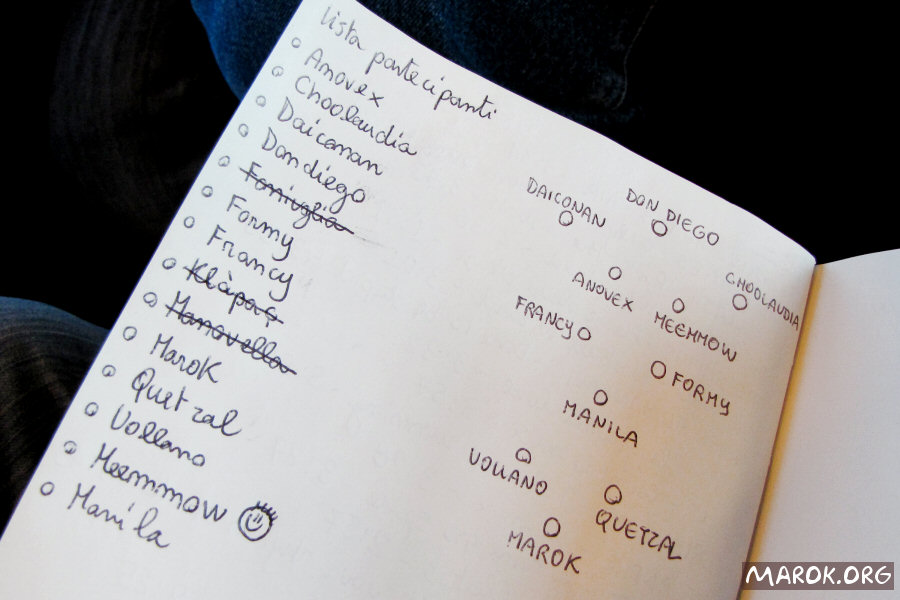 lista partecipanti
Anovex
Choolaudia
Daiconan
Dondiego
Foniuglia
Formy
Francy
Klàpaç
Manovella
Marok
Quetzal
Vollano
Meemmow
Manila
DAICONAN
DON DIEGO
ANOVEX
CHOOLAUDIA
MEEMMOW
FRANCY
FORMY
MANILA
VOLLANO
QUETZAL
MAROK
MAROK.ORG